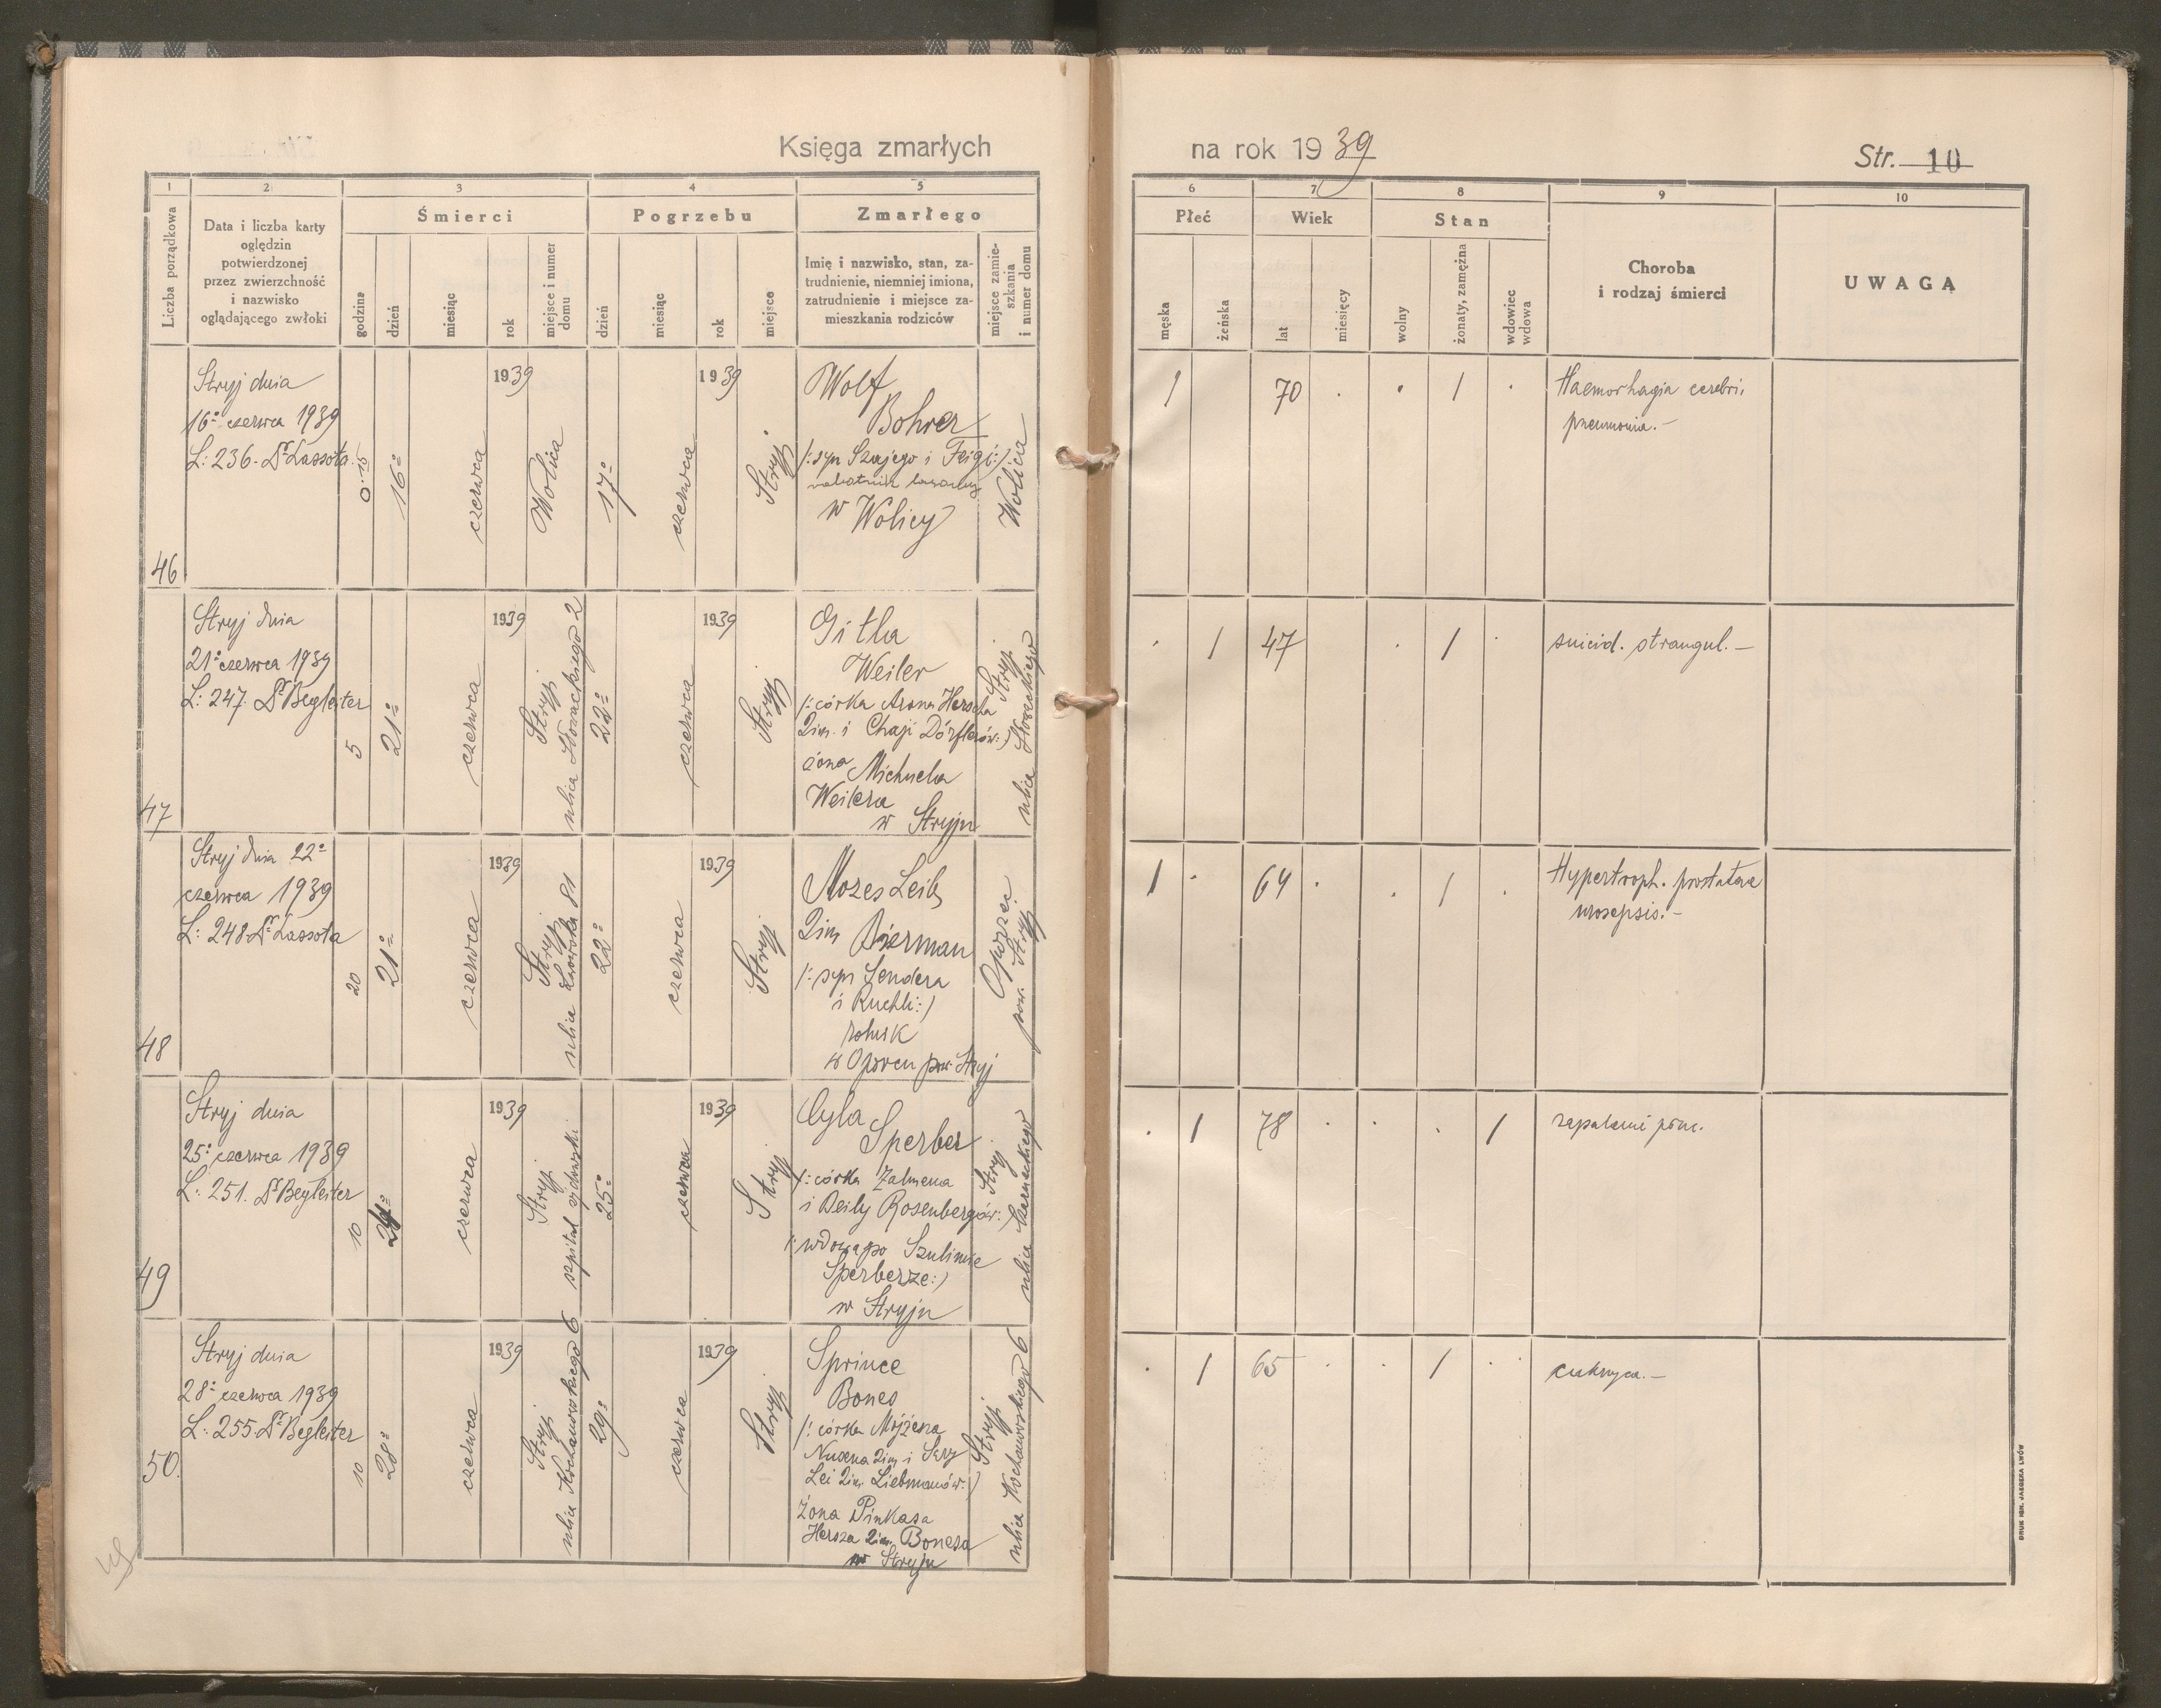 Księga zmarłych
na rok 1939
Str. 10
1
2
3
4
5
6
7
8
9
10
Liczba porządkowa
Data i liczba karty
oględzin
potwierdzonej
przez zwierzchność
i nazwisko
oglądającego zwłoki
Śmierci
godzina
dzień
miesiąc
rok
miejsce i numer
domu
Pogrzebu
dzień
miesiąc
rok
miejsce
Zmarłego
Imię i nazwisko, stan, za-
trudnienie, niemniej imiona,
zatrudnienie i miejsce za-
mieszkania rodziców
miejsce zamie-
szkania
i numer domu
Płeć
męska
żeńska
Wiek
lat
miesięcy
Stan
wolny
żonaty, zamężna
wdowiec
wdowa
Choroba
i rodzaj śmierci
UWAGA
46
Stryj dnia
16º czerwca 1939
L: 236. Dr Lassota
0.15
16º
czerwca
1939
Wolica
17º
czerwca
1939
Stryj
Wolf
Bohrer
/: syn Szajego i Feigi :/
w Wolicy
Wolica
1
70
.
.
1
.
Haemorhagia cerebri,
pneumonia.-
47
Stryj dnia
21º czerwca 1939
L: 247. Dr Begleiter
5
21º
czerwca
1939
Stryj
ulica Słowackiego 2
22º
czerwca
1939
Stryj
Gitla
Weiler
/: córka Arona Herscha
2im. i Chaji Dörflerów :/
żona Michaela
Weilera
w Stryju
Stryj
ulica Słowackiego
.
1
47
.
1
.
suicid. strangul. -
48
Stryj dnia 22º
czerwca 1939
L: 248 Dr Lassota
20
21º
czerwca
1939
Stryj
ulica Lwowska 81
22º
czerwca
1939
Stryj
Mozes Leib
2im Bierman
/: syn Sendera
i Ruchli :/
rolnik
w Oporcu pow. Stryj
Oporzec
pow. Stryj
1
.
64
.
.
1
.
Hypertroph. prostatae
urosepsis.-
49
Stryj dnia
25º czerwca 1939
L: 251. Dr Begleiter
10
24º
czerwca
1939
Stryj
szpital żydowski
25º
czerwca
1939
Stryj
Cyla
Sperber
/: córka Zalmena
i Beily Rosenbergów :/
/: wdowa po Szulimie
Sperberze :/
w Stryju
Stryj
ulica Czarneckiego
.
1
78
.
.
.
1
zapalenie płuc.
50.
Stryj dnia
28º czerwca 1939
L: 255. Dr Begleiter
10
28º
czerwca
1939
Stryj
ulica Kochanowskiego 6
29º
czerwca
1939
Stryj
Sprince
Bones
/: córka Mojżesza
Nusena 2im i Sary
Lei 2im. Liebmanów :/
żona Pinkasa
Hersza 2im. Bonesa
w Stryju
Stryj
ulica Kochanowskiego 6
.
1
65
.
.
1
.
cukrzyca.-
DRUK HEN. JAEGERA LWÓW